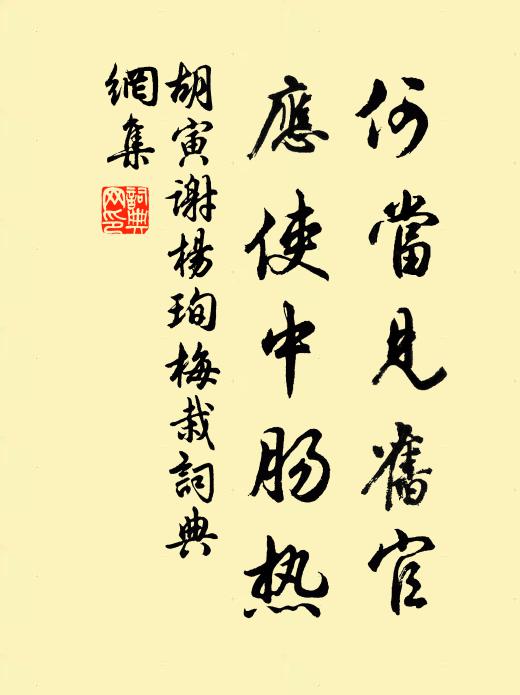 何當見舊官
應使中肠热
胡寅谢楊珣梅栽詞典
網集
詞典
网印